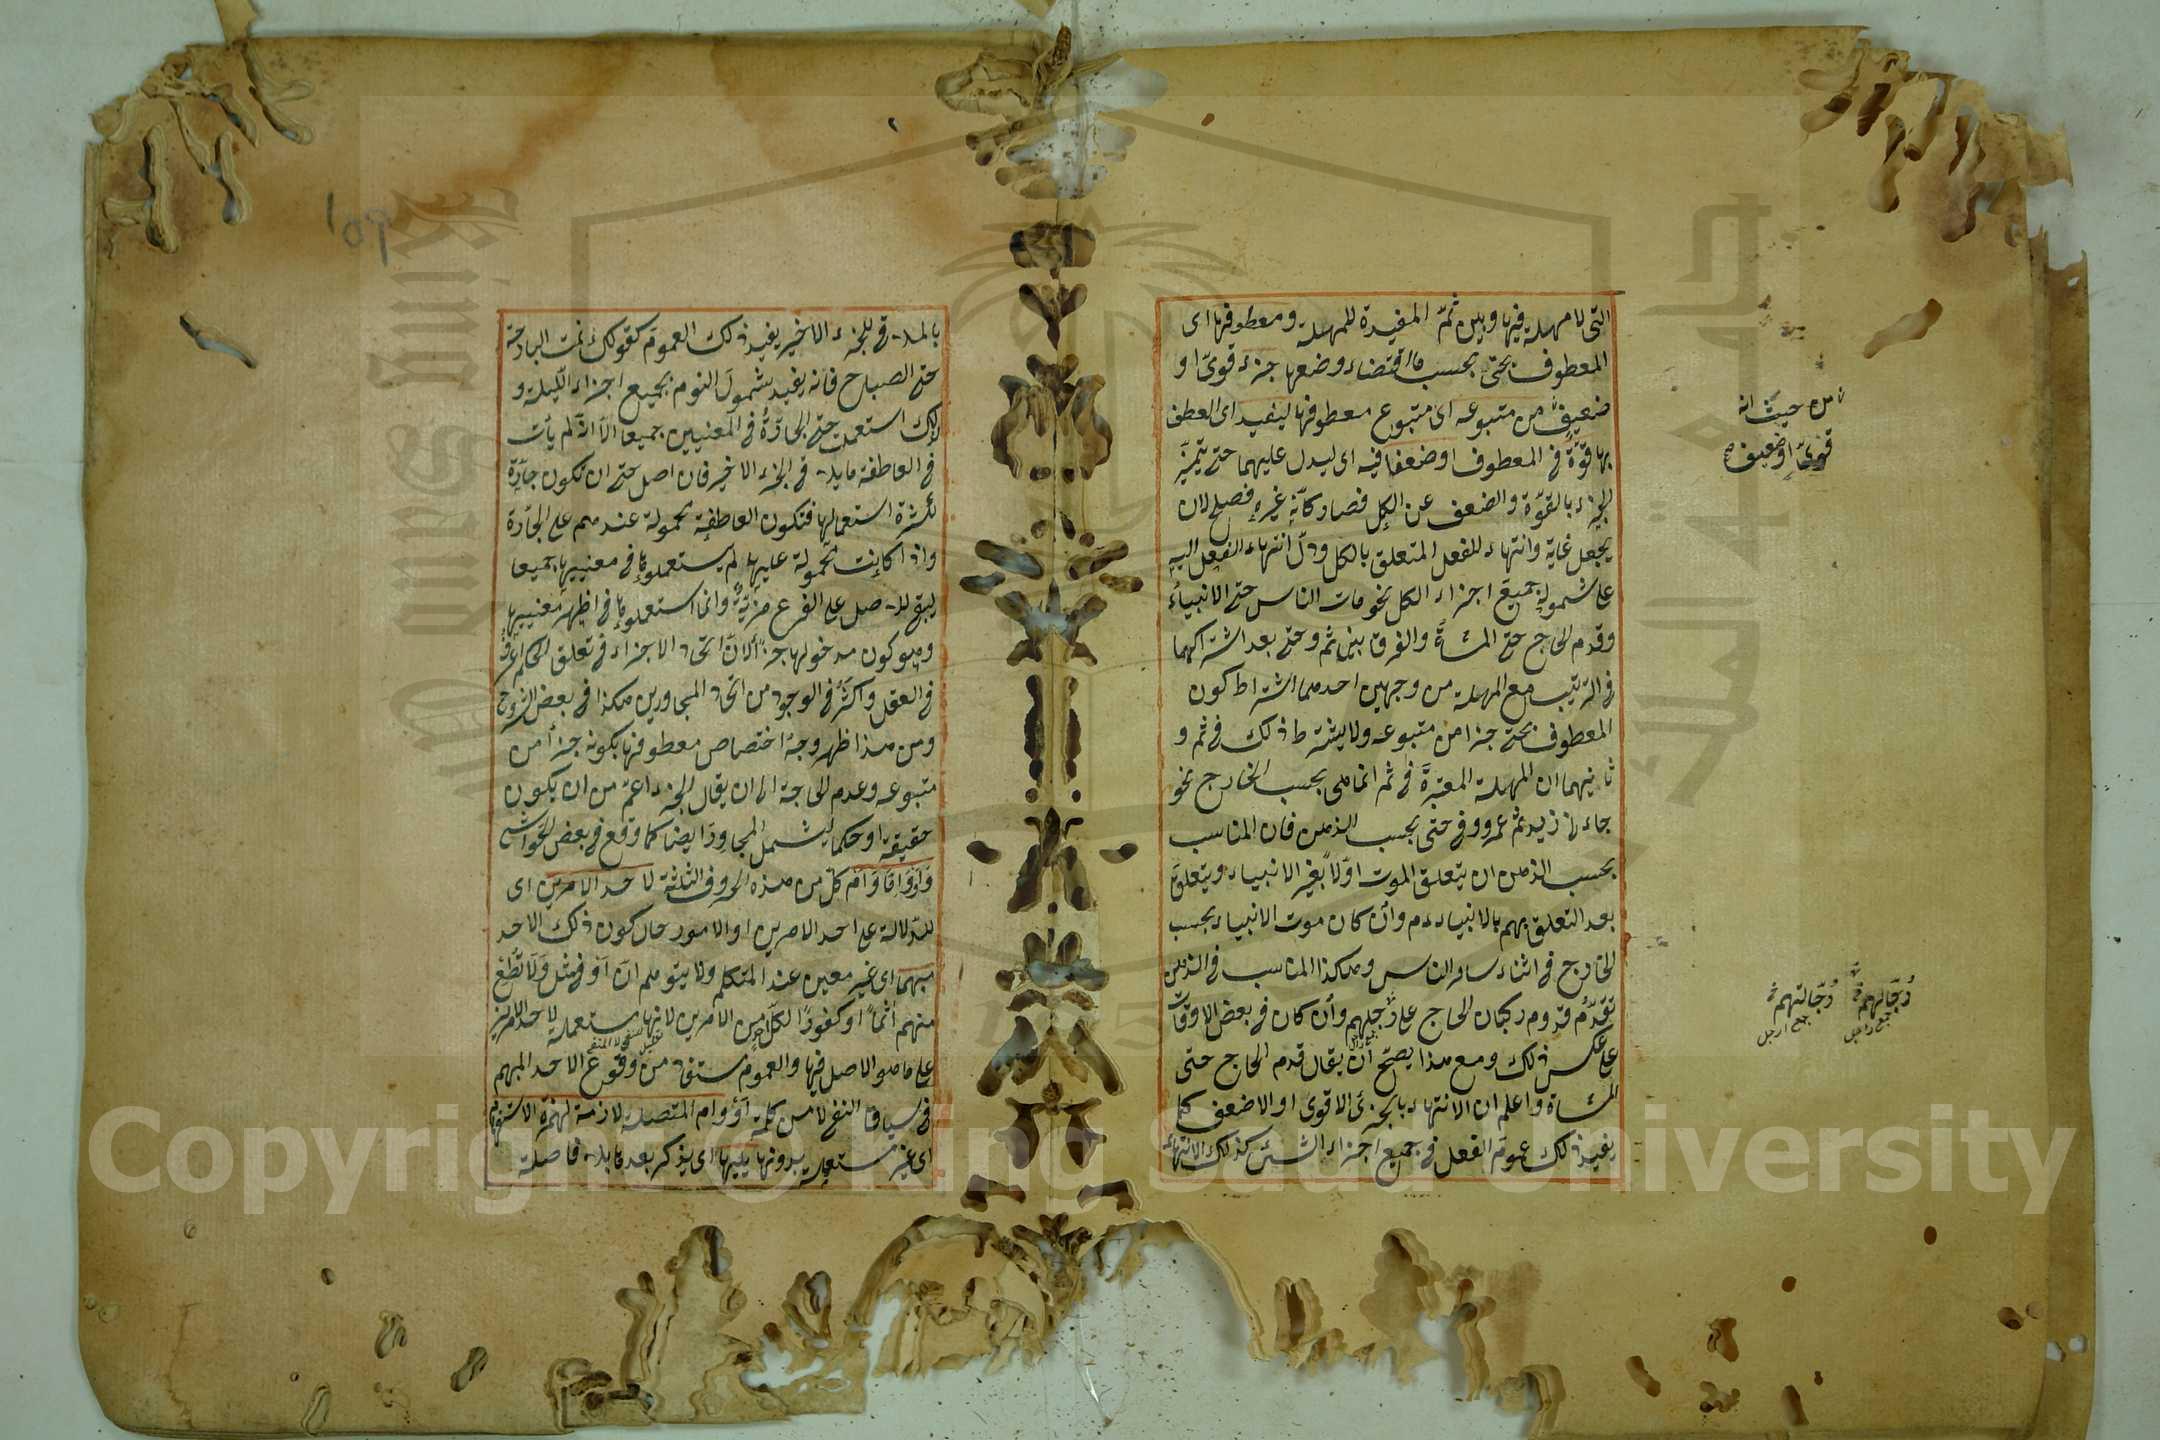 التى لا مهلة فيها وبين ثمّ المفيدة للمهلة ومعطوفها اى
المعطوف بحتى بحسب ما اقتضاه وضعها جزء قوىّ او
ضعيف من متبوعه اى متبوع معطوفها ليفيد اى العطف
بها قوّة فى المعطوف او ضعفا فيه اى ليدل عليهما حتى يتميّز
الجزء بالقوّة والضعف عن الكل فصار كانّه غيره فصلح لان
يجعل غاية وانتهاء للفعل المتعلق بالكل ودلّ انتهاء الفعل اليه
على شموله جميع اجزاء الكل نحو مات الناس حتى الانبياء
وقدم الحاج حتى المشاة والفرق بين ثم وحتى بعد اشتراكهما
فى الترتيب مع المهلة من وجهين احدهما اشتراط كون
المعطوف بحتى جزأ من متبوعه ولا يشترط ذلك فى ثم و
ثانيهما ان المهلة المعتبرة فى ثم انما هى بحسب الخارج نحو
جاءنى زيد ثم عمرو وفى حتى بحسب الذهن فان المناسب
بحسب الذهن ان يتعلق الموت اوّلا بغير الانبياء ويتعلق
بعد التعلق بهم بالانبياء وان كان موت الانبياء بحسب
الخارج فى اثناء سائر الناس وهكذا المناسب فى الذهن
تقدّم قدوم ركبان الحاج على رجّالهم وان كان فى بعض الاوقات
على عكس ذلك ومع هذا يصحّ ان يقال قدم الحاج حتى
المشاة واعلم ان الانتهاء بالجزء الاقوى او الاضعف كما
يفيد ذلك عموم الفعل فى جميع اجزاء الشئ كذلك الانتهاء
من حيث انه
قوىّ او ضعيف
رجّالهم
جمع راجل
رجّالتهم
جمع ارجل
١٥٩
بالملاقى للجزء الاخير يفيد ذلك العموم كقولك نمت البارحة
حتى الصباح فانه يفيد شمول النوم بجميع اجزاء الليلة و
لذلك استعملت حتى الجارّة فى المعنيين جميعا الا انه لم يأت
فى العاطفة ما يلاقى الجزء الاخير فان اصل حتى ان تكون جارّة
لكثرة استعمالها فتكون العاطفة محمولة عندهم على الجارّة
واذا كانت محمولة عليها لم يستعملوها فى معنييها جميعا
ليبقى للاصل على الفرع مزيّة وانما استعملوها فى اظهر معنييها
وهو كون مدخولها جزأ لان اتحاد الاجزاء فى تعلق الحكم اعرف
فى العقل واكثر فى الوجود من اتحاد المجاورين هكذا فى بعض الشروح
ومن هذا ظهر وجه اختصاص معطوفها بكونه جزأ من
متبوعه وعدم الحاجة الى ان يقال الجزء اعمّ من ان يكون
حقيقة او حكما ليشمل المجاور ايضا كما وقع فى بعض الحواشى
وَاوْ وَاِمّا وَاَمْ كلّ من هذه الحروف الثلثة لاحد الامرين اى
للدلالة على احد الامرين او الامور حال كون ذلك الاحد
مبهما اى غير معين عند المتكلم ولا يتوهم انّ اَوْ فى مثل وَلَا تُطِعْ
منهم آثما او كفورًا لكلّ من الامرين لانها مستعملة لاحد الامرين
على ما هو الاصل فيها والعموم مستفاد من وقوع الاحد المبهم
فى سياق النفى لا من كلمة اَوْ وام المتصلة لازمة لهمزة الاستفهام
اى غير مستعملة بدونها يليها اى يذكر بعدها بلا فاصلة
Copyright © King Saud University